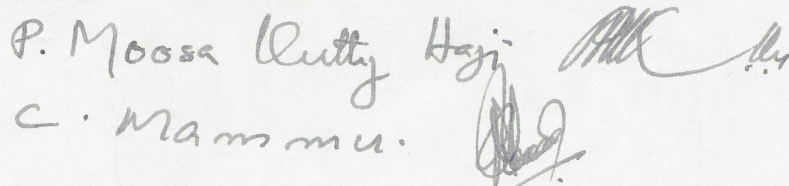 P. Moosa Kutty Haji
C. Mammu.